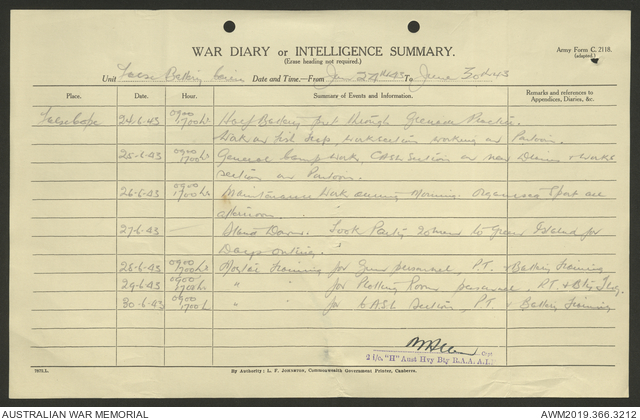 WAR DIARY or INTELLIGENCE SUMMARY.
(Erase heading not required.)
Army Form C. 2118.
(adapted.)
Unit Battery Date and Time.—From June 24th 43 To June 30th 43
Place. Date. Hour. Summary of Events and Information. Remarks and references to Appendices, Diaries, &c.
24-6-43 0900 1700 hrs Half Battery put through Grenade Practice.
Work on section working on Pontoon.
25-6-43 0900 1700 hrs General Camp work, CASL section on new Drains & works
section on Pontoon.
26-6-43 0900 1700 hrs Maintenance work during Morning. Organised Sport all
afternoon.
27-6-43 Stand Down. Took Party 20 men to Green Island for
Days outing.
28-6-43 0900 1700 hrs Mortar Training for Gun personnel, P.T. & Battery Training
29-6-43 0900 1700 hrs " " for Plotting Room personnel. P.T. & Bty Tng.
30-6-43 0900 1700 h " " for CASL section, P.T. & Battery Training
2 i/c. "H" Aust Hvy Bty R.A.A. A.I.F.
7678.L.
By Authority: L. F. JOHNSTON, Commonwealth Government Printer, Canberra.
AUSTRALIAN WAR MEMORIAL
AWM2019.366.3212